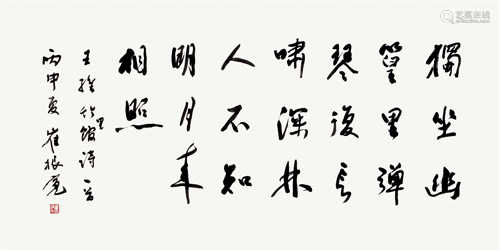 獨坐幽
篁里彈
琴復長
嘯深林
人不知
明月来
相照
王維竹里館詩一首
丙申夏崔振寬